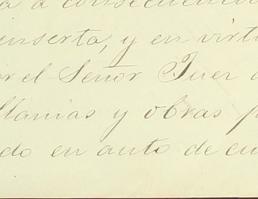 a a consecuencia
inserta, y en virtu
or el Señor Juez d
llanias y obras p
do en auto de cu